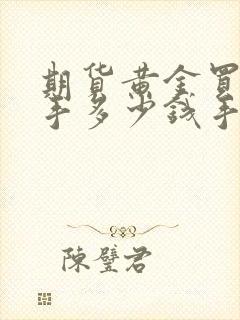 期貨黃金買
手多少錢手
陳璧君